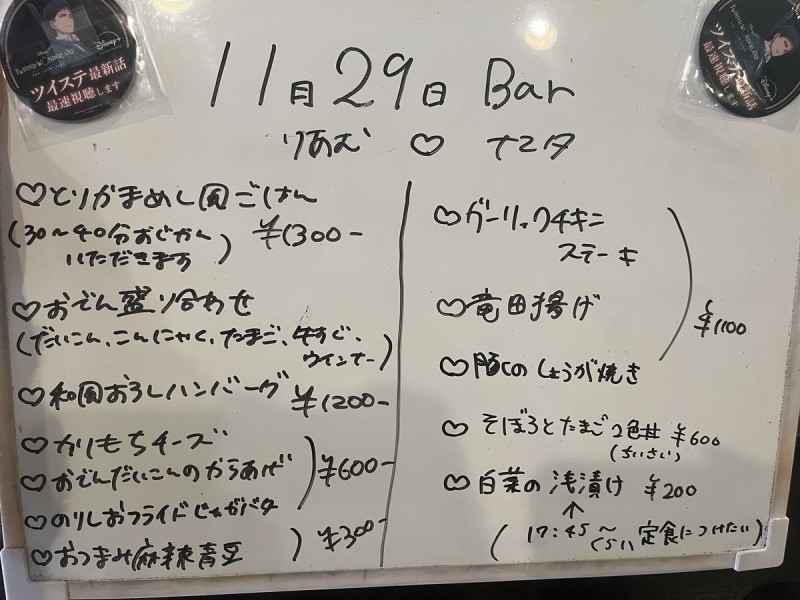 TWISTED WONDERLAND
Disney+
ツイステ最新話
最速視聴します
TWISTED WONDERLAND
Disney+
ツイステ最新話
最速視聴します
11月29日 Bar
りあむ ♡ ナニタ
♡とりかまめし風ごはん
(30〜40分おじかん
いただきます) ¥1300-
♡おでん盛り合わせ
(だいこん、こんにゃく、たまご、牛すじ、
ウインナー)
♡和風おろしハンバーグ ¥1200-
♡かりもちチーズ
♡おでんだいこんのからあげ ¥600-
♡のりしおフライドじゃがバタ
♡おつまみ麻辣青豆 ) ¥300-
♡ガーリックチキン
ステーキ
♡竜田揚げ
¥1100
♡豚Cのしょうが焼き
♡そぼろとたまご2色丼 ¥600
(ちいさい)
♡白菜の浅漬け ¥200
↑
(17:45〜くらい 定食につけたい)